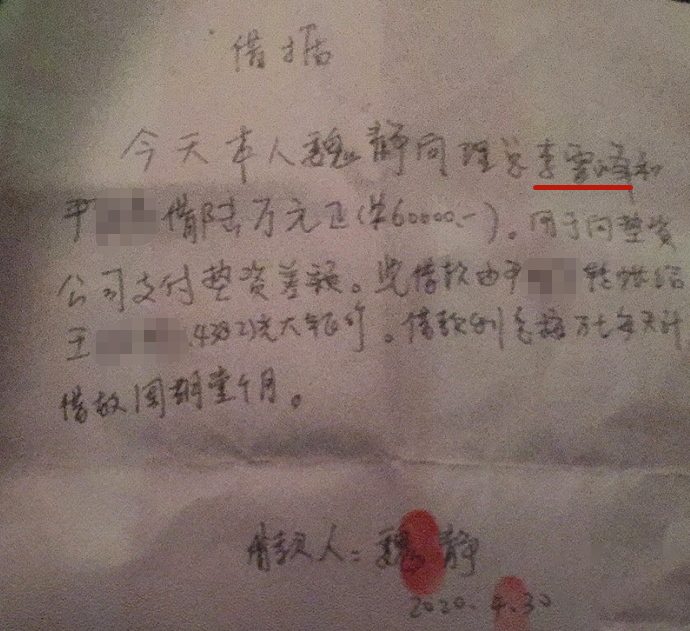 借据
今天本人魏静向理总李雷泽和
平 借陆万元正(¥60000.-)。用于向垫资
公司支付垫资差额。此借款由平 转账给
王 (4382)光大银行。借款利息按万七每天计
借款周期壹个月。
借款人:魏静
2020.4.30